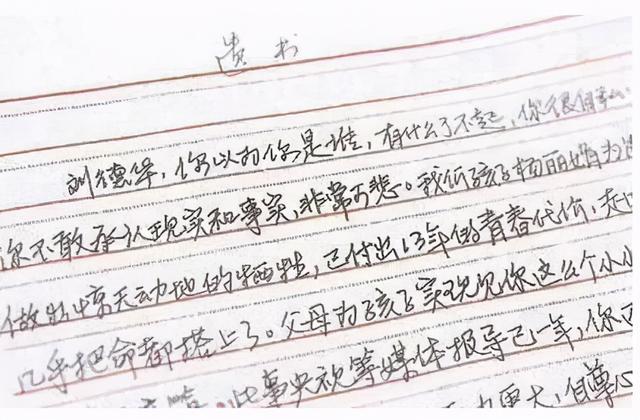 遗书
刘德华,你以为你是谁,有什么了不起,你很自
你不敢承认现实和事实,非常可悲。我的孩子杨丽娟为
做出惊天动地的牺牲,已付出13年的青春代价,走
几乎把命都搭上了。父母为孩子实现见你这么个小小
此事央视等媒体报导已一年,你
更大,自尊心